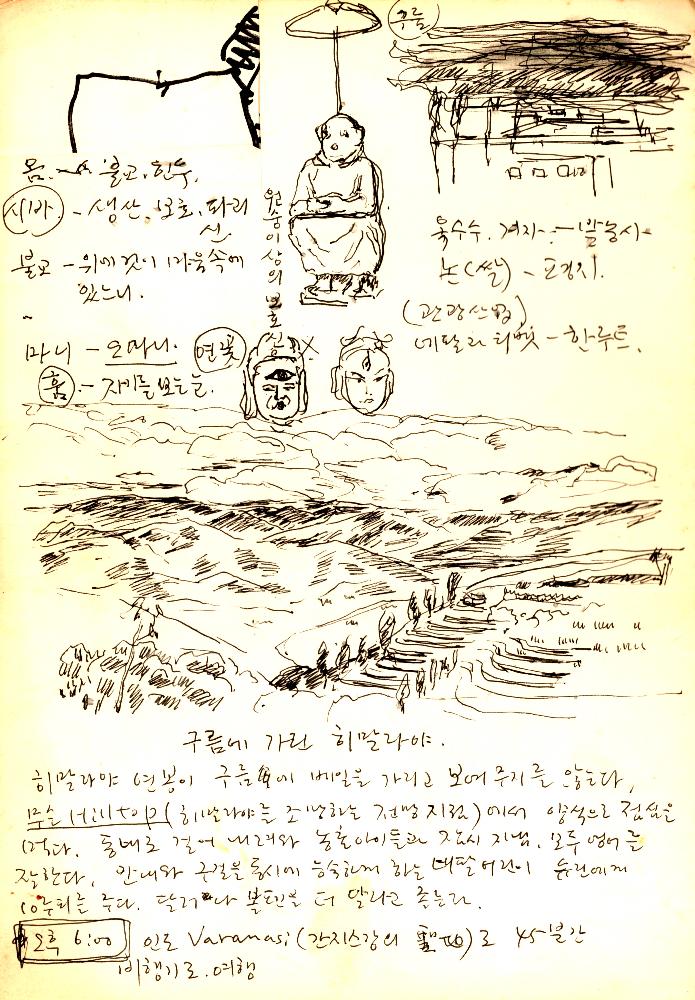 구름
몸 불교, 힌두,
시바 - 생산, 보호, 파괴
신
불교 - 위에 것이 마음속에
있느니.
원숭이상의 보호신
옥수수. 겨자 - 밭농사
논(쌀) -
(관광산업)
네팔과 티벳 - 한루트.
마니 - 오마니. 연꽃
훔 - 자기를 보는 눈.
구름에 가린 히말라야.
히말라야 연봉이 구름속에 베일을 가리고 보여주지를 않는다,
Hilltop (히말라야를 조망하는 전망지점)에서 양식으로 점심을
먹다. 동네로 걸어 내려와 농촌아이들과 잠시 지냄. 모두 영어를
잘한다. 안내와 구걸을 동시에 능숙하게 하는 네팔 어린이 에게
10루피를 주다. 달러나 볼펜을 더 달라고 조른다.
오후 6:00 인도 Varanasi (간지스강의 聖地)로 45분간
비행기로 여행